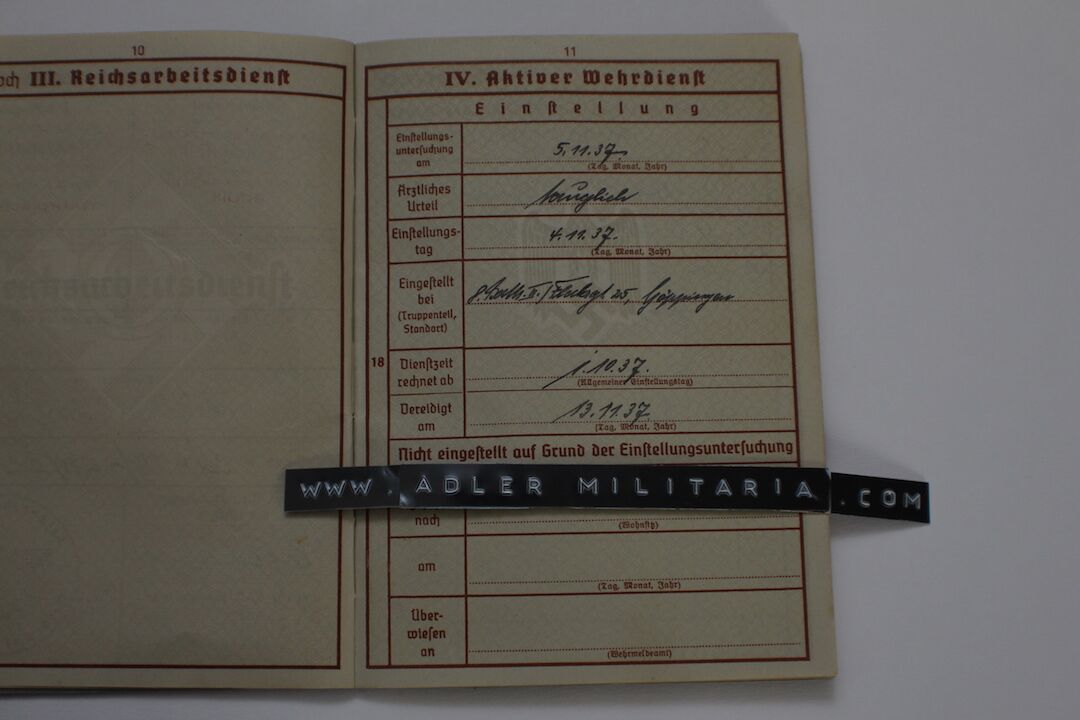 10
och III. Reichsarbeitsdienst
11
IV. Aktiver Wehrdienst
Einstellung
Einstellungs-
untersuchung
am
5.11.37.
(Tag, Monat, Jahr)
Ärztliches
Urteil
tauglich
Einstellungs-
tag
4.11.37.
(Tag, Monat, Jahr)
Eingestellt
bei
(Truppenteil,
Standort)
25, Göppingen
18
Dienstzeit
rechnet ab
1.10.37.
(Allgemeiner Einstellungstag)
Vereidigt
am
13.11.37
(Tag, Monat, Jahr)
Nicht eingestellt auf Grund der Einstellungsuntersuchung
WWW.ADLER MILITARIA.COM
nach
(Wohnsitz)
am
(Tag, Monat, Jahr)
Über-
wiesen
an
(Wehrmeldeamt)